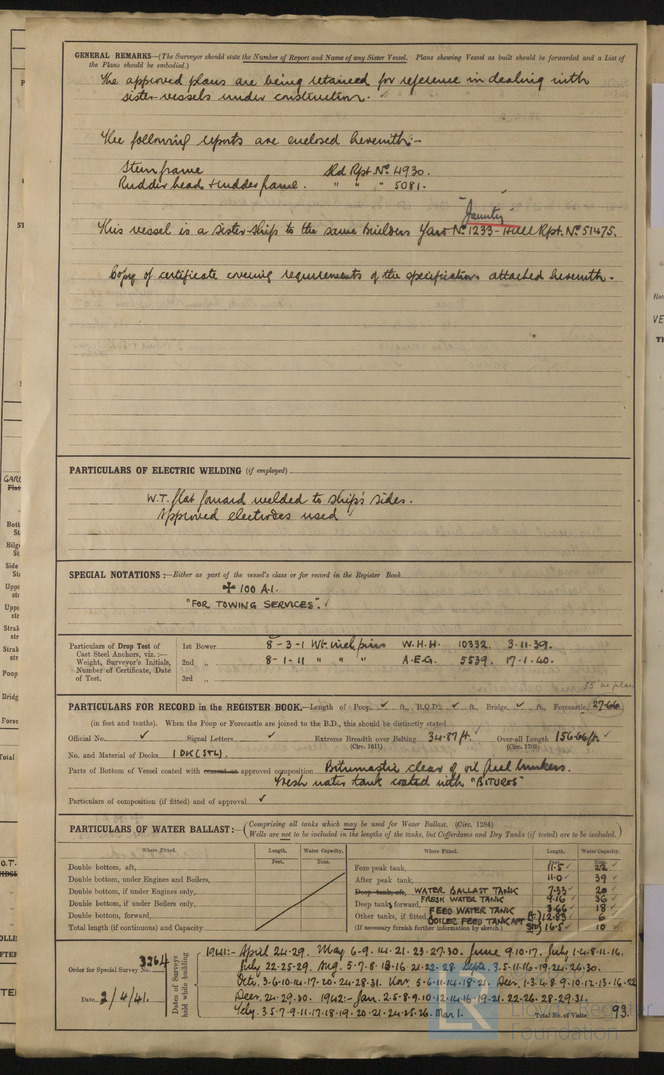 GENERAL REMARKS—(The Surveyor should state the Number of Report and Name of any Sister Vessel. Plans showing Vessel as built should be forwarded and a List of
the Plans should be embodied.)
The approved plans are being retained for reference in dealing with
sister vessels under construction.
The following reports are enclosed herewith:-
Stern frame Sld Rpt. No 4930.
Rudder head & rudder frame. " " " 5081.
"Jaunty"
This vessel is a sister ship to the same Builders Yard No 1233 - Hull Rpt. No 51475.
Copy of certificate covering requirements of the specification attached herewith.
PARTICULARS OF ELECTRIC WELDING (if employed)
W.T. flat forward welded to ship's sides.
Approved electrodes used
SPECIAL NOTATIONS:—Either as part of the vessel's class or for record in the Register Book
✠ 100 A.1.
"FOR TOWING SERVICES".
Particulars of Drop Test of
Cast Steel Anchors, viz.:—
Weight, Surveyor's Initials,
Number of Certificate, Date
of Test.
1st Bower 8-3-1 Wt. inch pins W.H.H. 10332. 3.11.39.
2nd „ 8-1-11 " " " A.E.G. 5539. 17.1.40.
3rd „
PARTICULARS FOR RECORD in the REGISTER BOOK.—Length of Poop ✓ ft., R.Q.D. ✓ ft., Bridge ✓ ft., Forecastle 27.66
(in feet and tenths). When the Poop or Forecastle are joined to the B.D., this should be distinctly stated
Official No. ✓ Signal Letters ✓ Extreme Breadth over Belting 34.87 ft. ✓ Over-all Length 156.66 ft. ✓
(Circ. 1611) (Circ. 1703)
No. and Material of Decks 1 DK (STL).
Parts of Bottom of Vessel coated with cement or approved composition Bitumastic clear of oil fuel bunkers.
Fresh water tank coated with "BITUROS"
Particulars of composition (if fitted) and of approval ✓
PARTICULARS OF WATER BALLAST:—(Comprising all tanks which may be used for Water Ballast. (Circ. 1284)
Wells are not to be included in the lengths of the tanks, but Cofferdams and Dry Tanks (if tested) are to be included.)
Where Fitted. Length. Water Capacity. Where Fitted. Length. Water Capacity.
Feet. Tons.
Double bottom, aft, Fore peak tank, 11.5 ✓ 22 ✓
Double bottom, under Engines and Boilers, After peak tank, 11.0 ✓ 39 ✓
Double bottom, if under Engines only, Deep tank, aft, WATER BALLAST TANK 7.33 20
Double bottom, if under Boilers only, Deep tank, forward, FRESH WATER TANK 9.16 36
Double bottom, forward, Other tanks, if fitted FEED WATER TANK 3.66 18
BOILER FEED TANK AFT (P.) 12.83 6
Total length (if continuous) and Capacity (If necessary furnish further information by sketch.) (S.) 16.5 10
Order for Special Survey No. 3264
Date 2/4/41.
Dates of Surveys held while building
1941:- April 24.29. May 6.9.14.21.23.27.30. June 9.10.17. July 1.4.8.11.16.
July 22.25.29. Aug. 5.7.8.13.16.21.22.28. Sept. 3.5.11.16.19.24.26.30.
Oct. 3.6.10.14.17.20.24.28.31. Nov. 5.6.11.14.18.21. Dec. 1.3.4.8.9.10.12.13.16.22
Dec. 24.29.30. 1942:- Jan. 2.5.8.9.10.12.14.16.19.21.22.26.28.29.31.
Feby. 3.5.7.9.11.17.18.19.20.21.24.25.26. Mar 1.
Total No. of Visits 93.
Lloyd's Register
Foundation